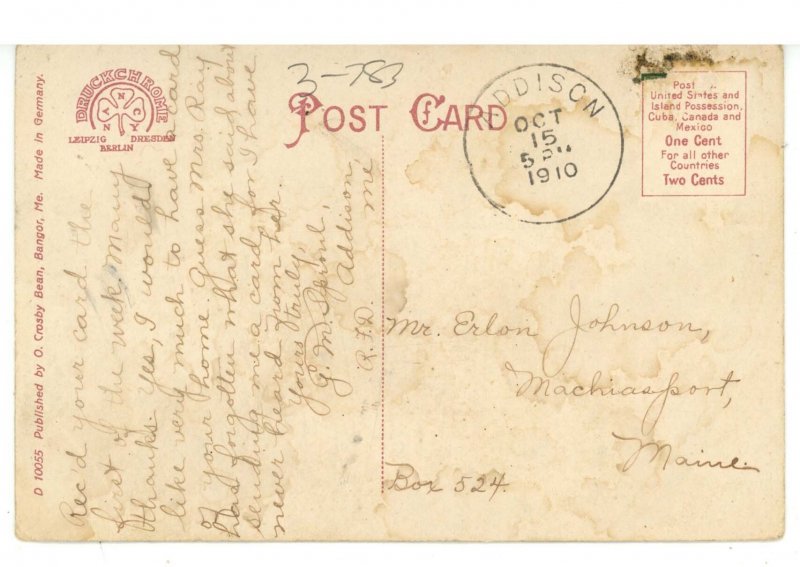 D 10055 Published by O. Crosby Bean, Bangor, Me. Made in Germany.
DRUCKCHROME
A N C Y N
LEIPZIG DRESDEN
BERLIN
3-783
POST CARD
ADDISON
OCT
15
5 PM
1910
Post
United States and
Island Possession,
Cuba, Canada and
Mexico
One Cent
For all other
Countries
Two Cents
Rec'd your card the
first of the week. Many
thanks. Yes, I would
like very much to have a card
of your home. Guess Mrs. Ray
has forgotten what she said about
sending me a card, for I have
never heard from her.
Yours truly,
G. M. Sproul,
Addison,
R.F.D. me
Mr. Erlon Johnson,
Machiasport,
Maine.
Box 524.